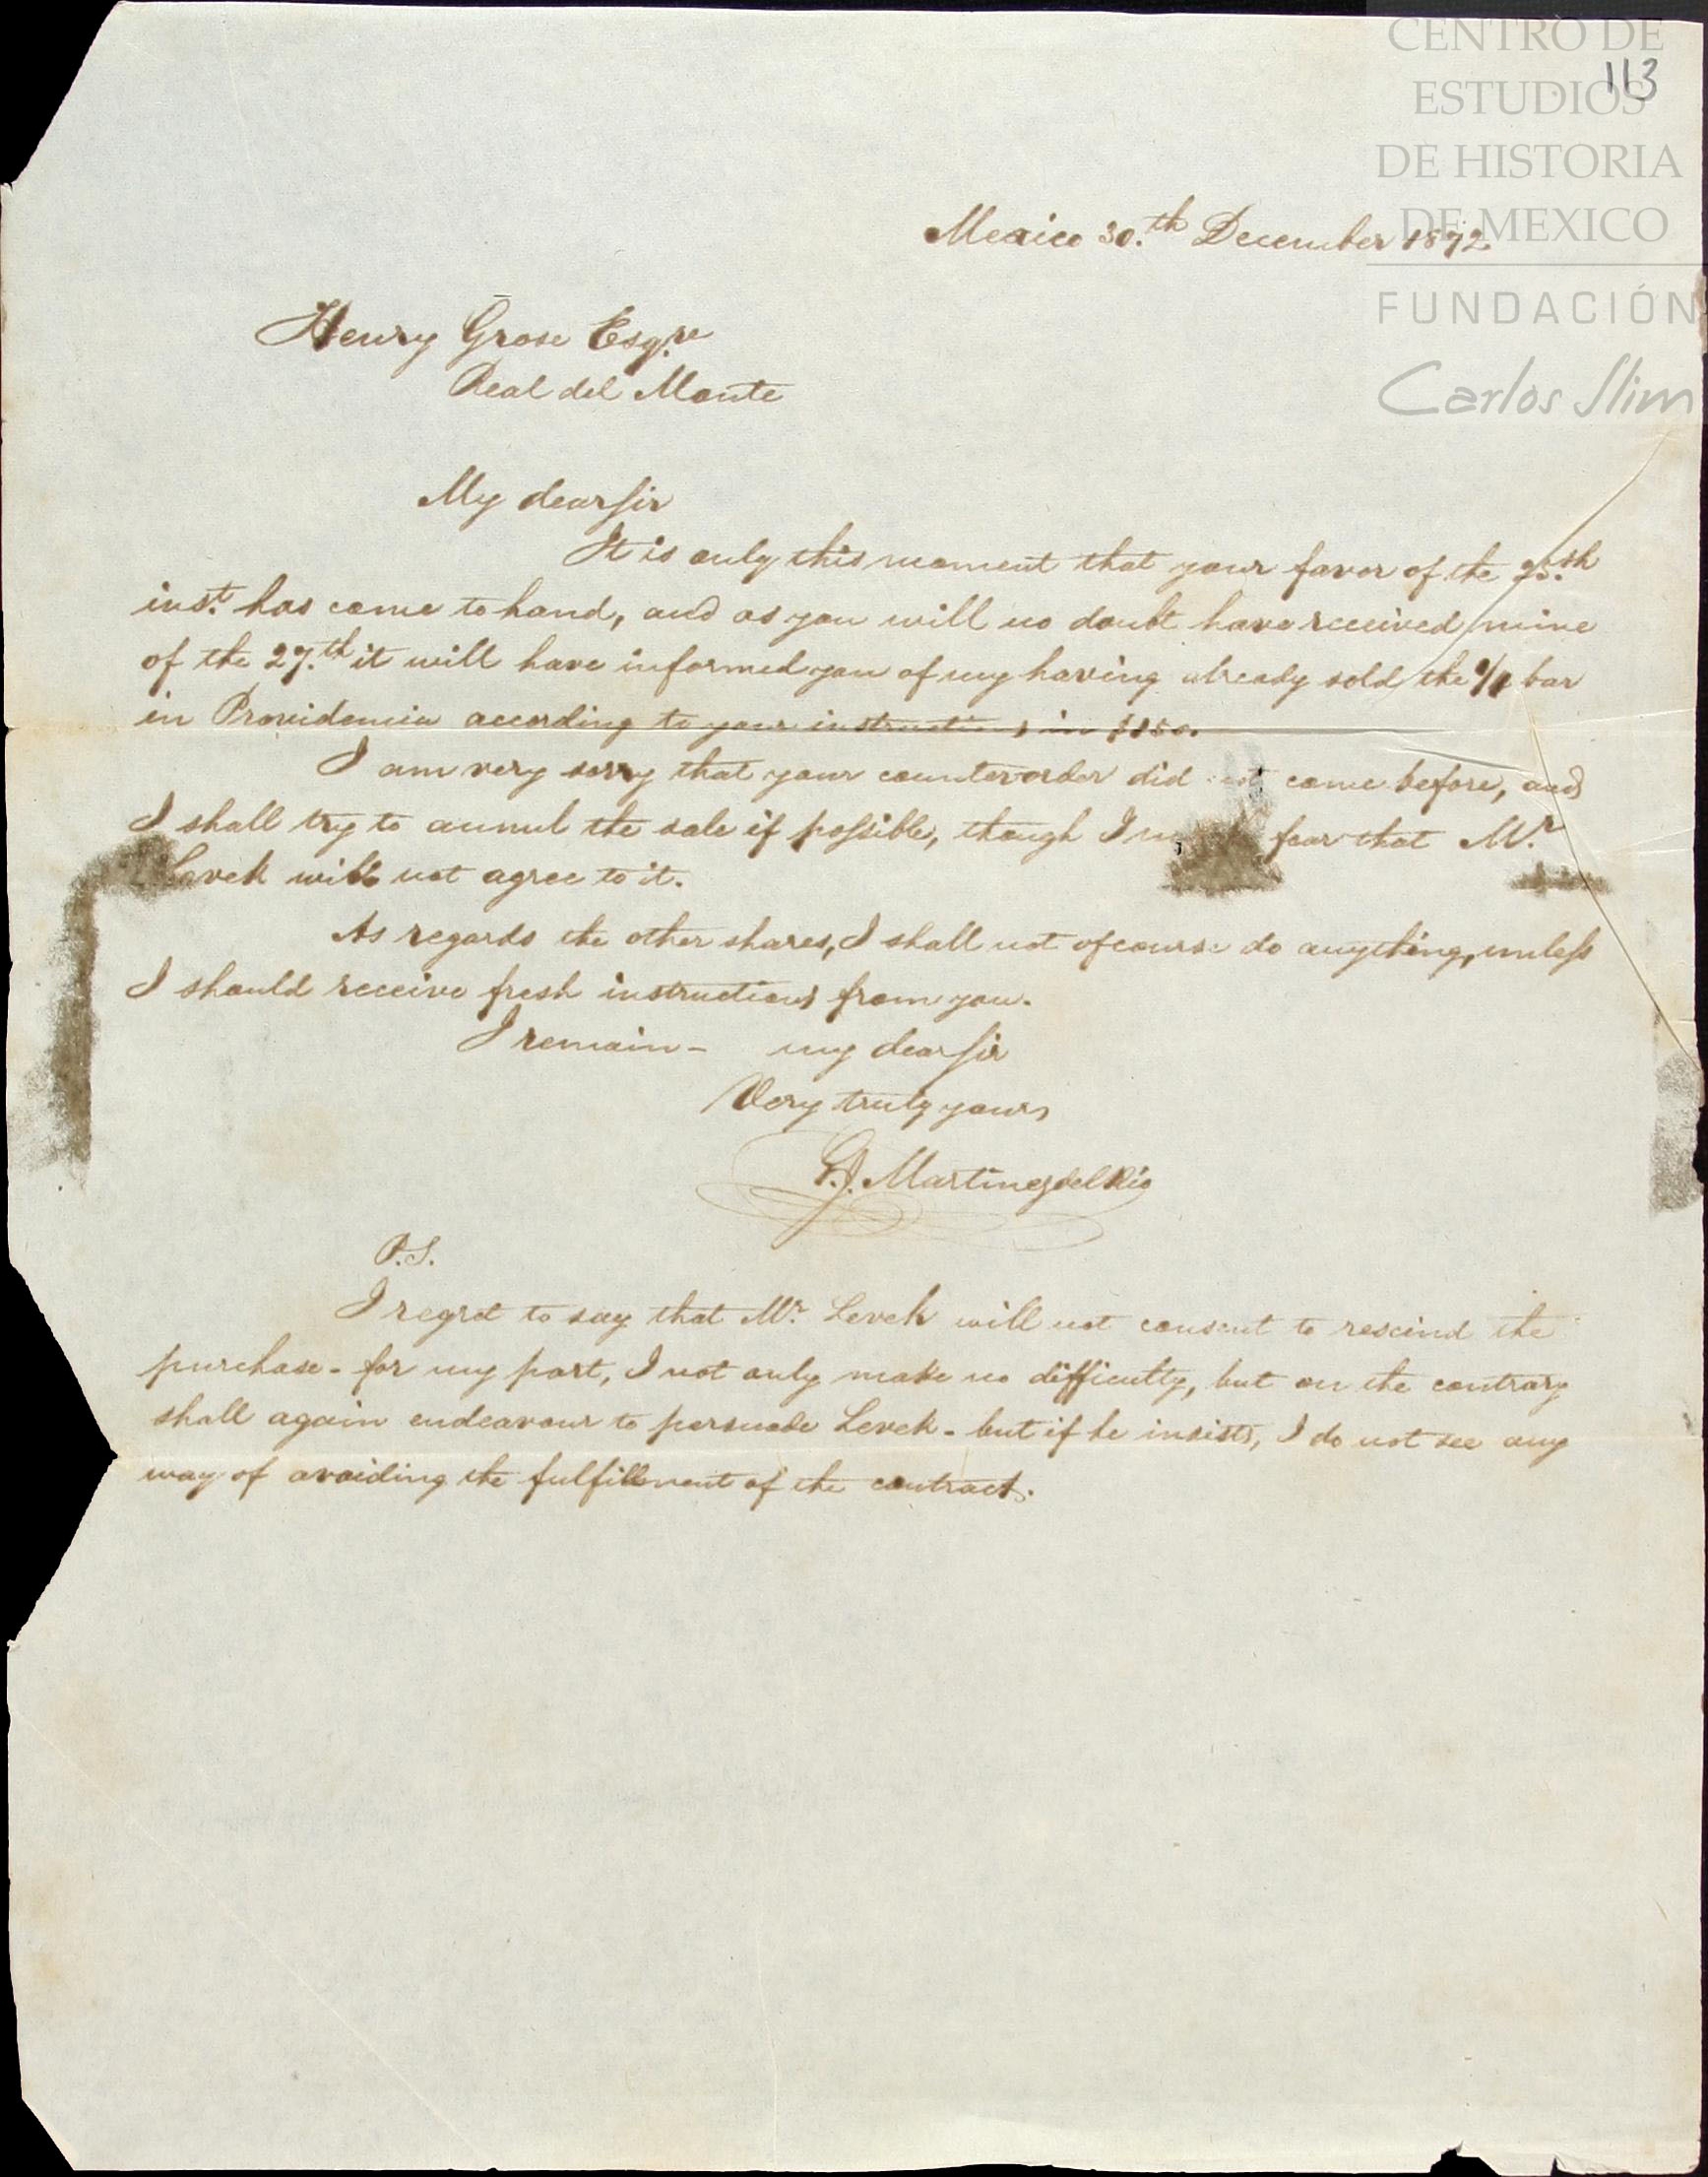 CENTRO DE
ESTUDIOS
DE HISTORIA
DE MEXICO
FUNDACIÓN
Carlos Slim
113
Mexico 30.th December 1872
Henry Grose Esq.re
Real del Monte
My dear Sir
It is only this moment that your favor of the 25.th
inst. has come to hand, and as you will no doubt have received mine
of the 27.th it will have informed you of my having already sold the bar
in Providencia according to your instructions in $850.
I am very sorry that your counterorder did not come before, and
I shall try to annul the sale if possible, though I fear that Mr.
Levek will not agree to it.
As regards the other shares, I shall not of course do anything, unless
I should receive fresh instructions from you.
I remain - my dear Sir
Very truly yours
G. J. Martinez del Rio
P.S.
I regret to say that Mr. Levek will not consent to rescind the
purchase - for my part, I not only make no difficulty, but on the contrary
shall again endeavour to persuade Levek - but if he insists, I do not see any
way of avoiding the fulfillment of the contract.